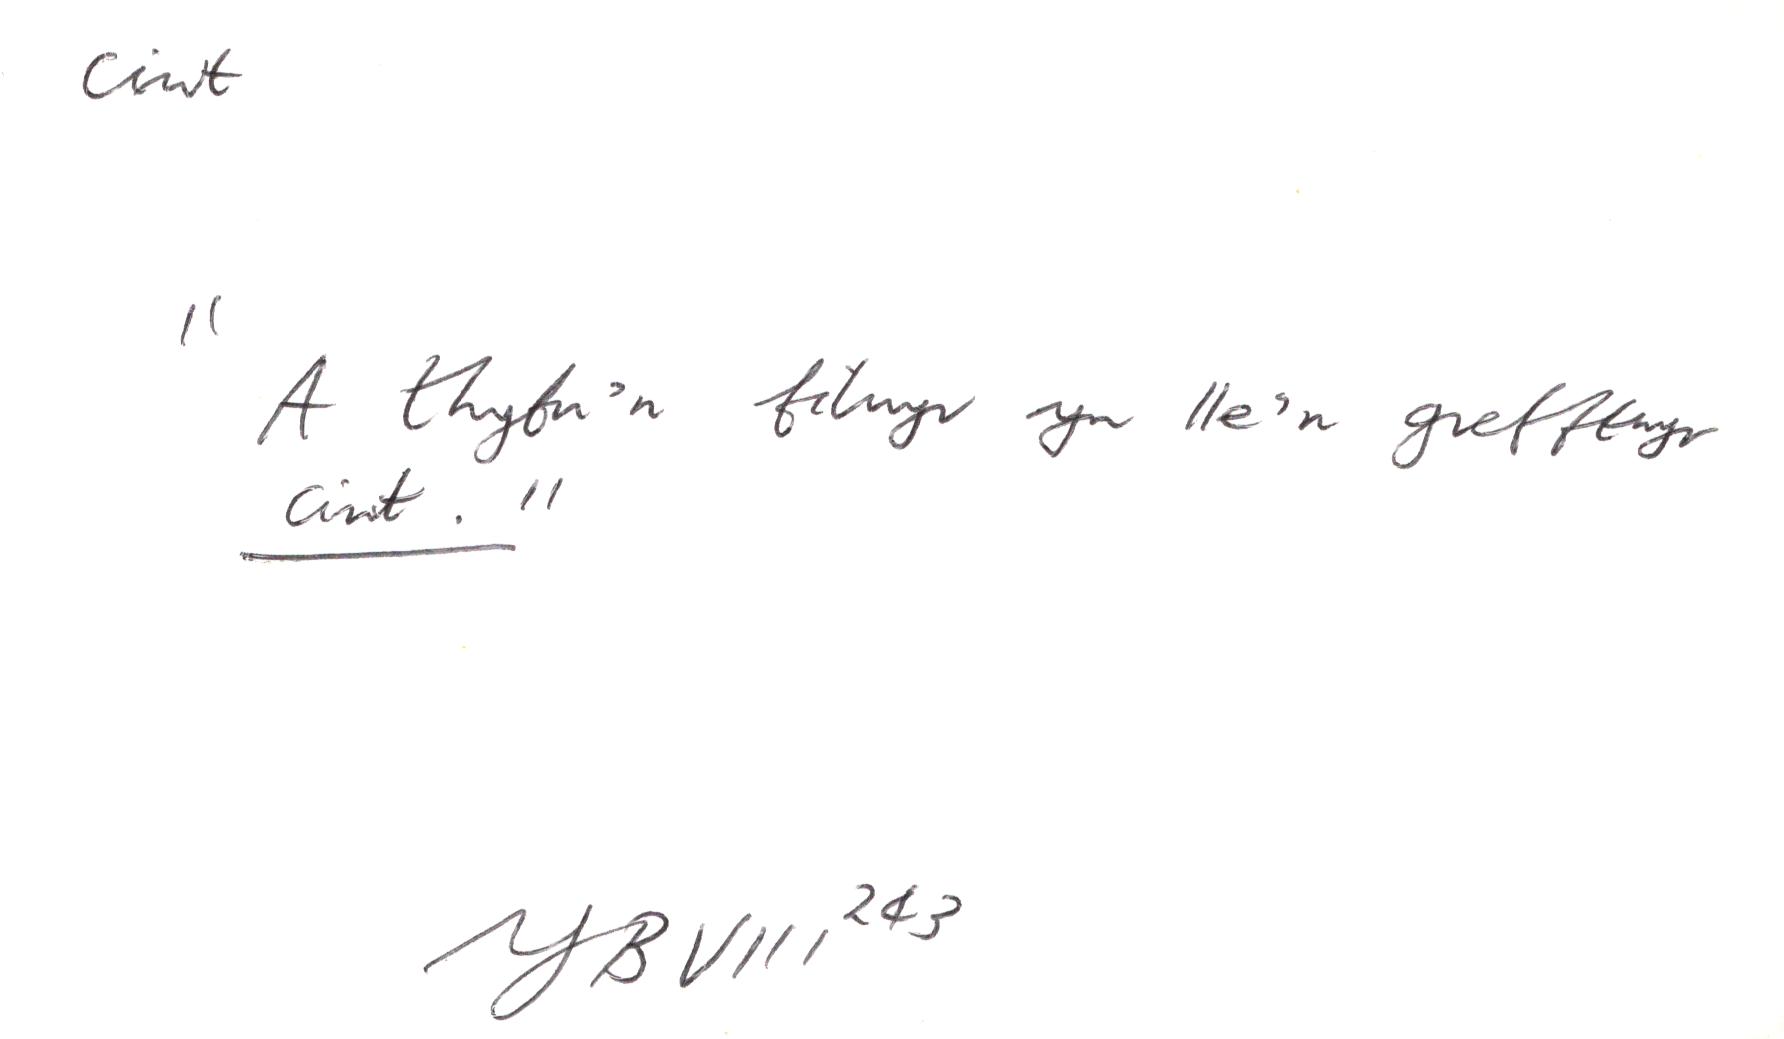 ciwt
"A thyfu'n filwyr yn lle'n grefftwyr
ciwt."
YB VIII, 243